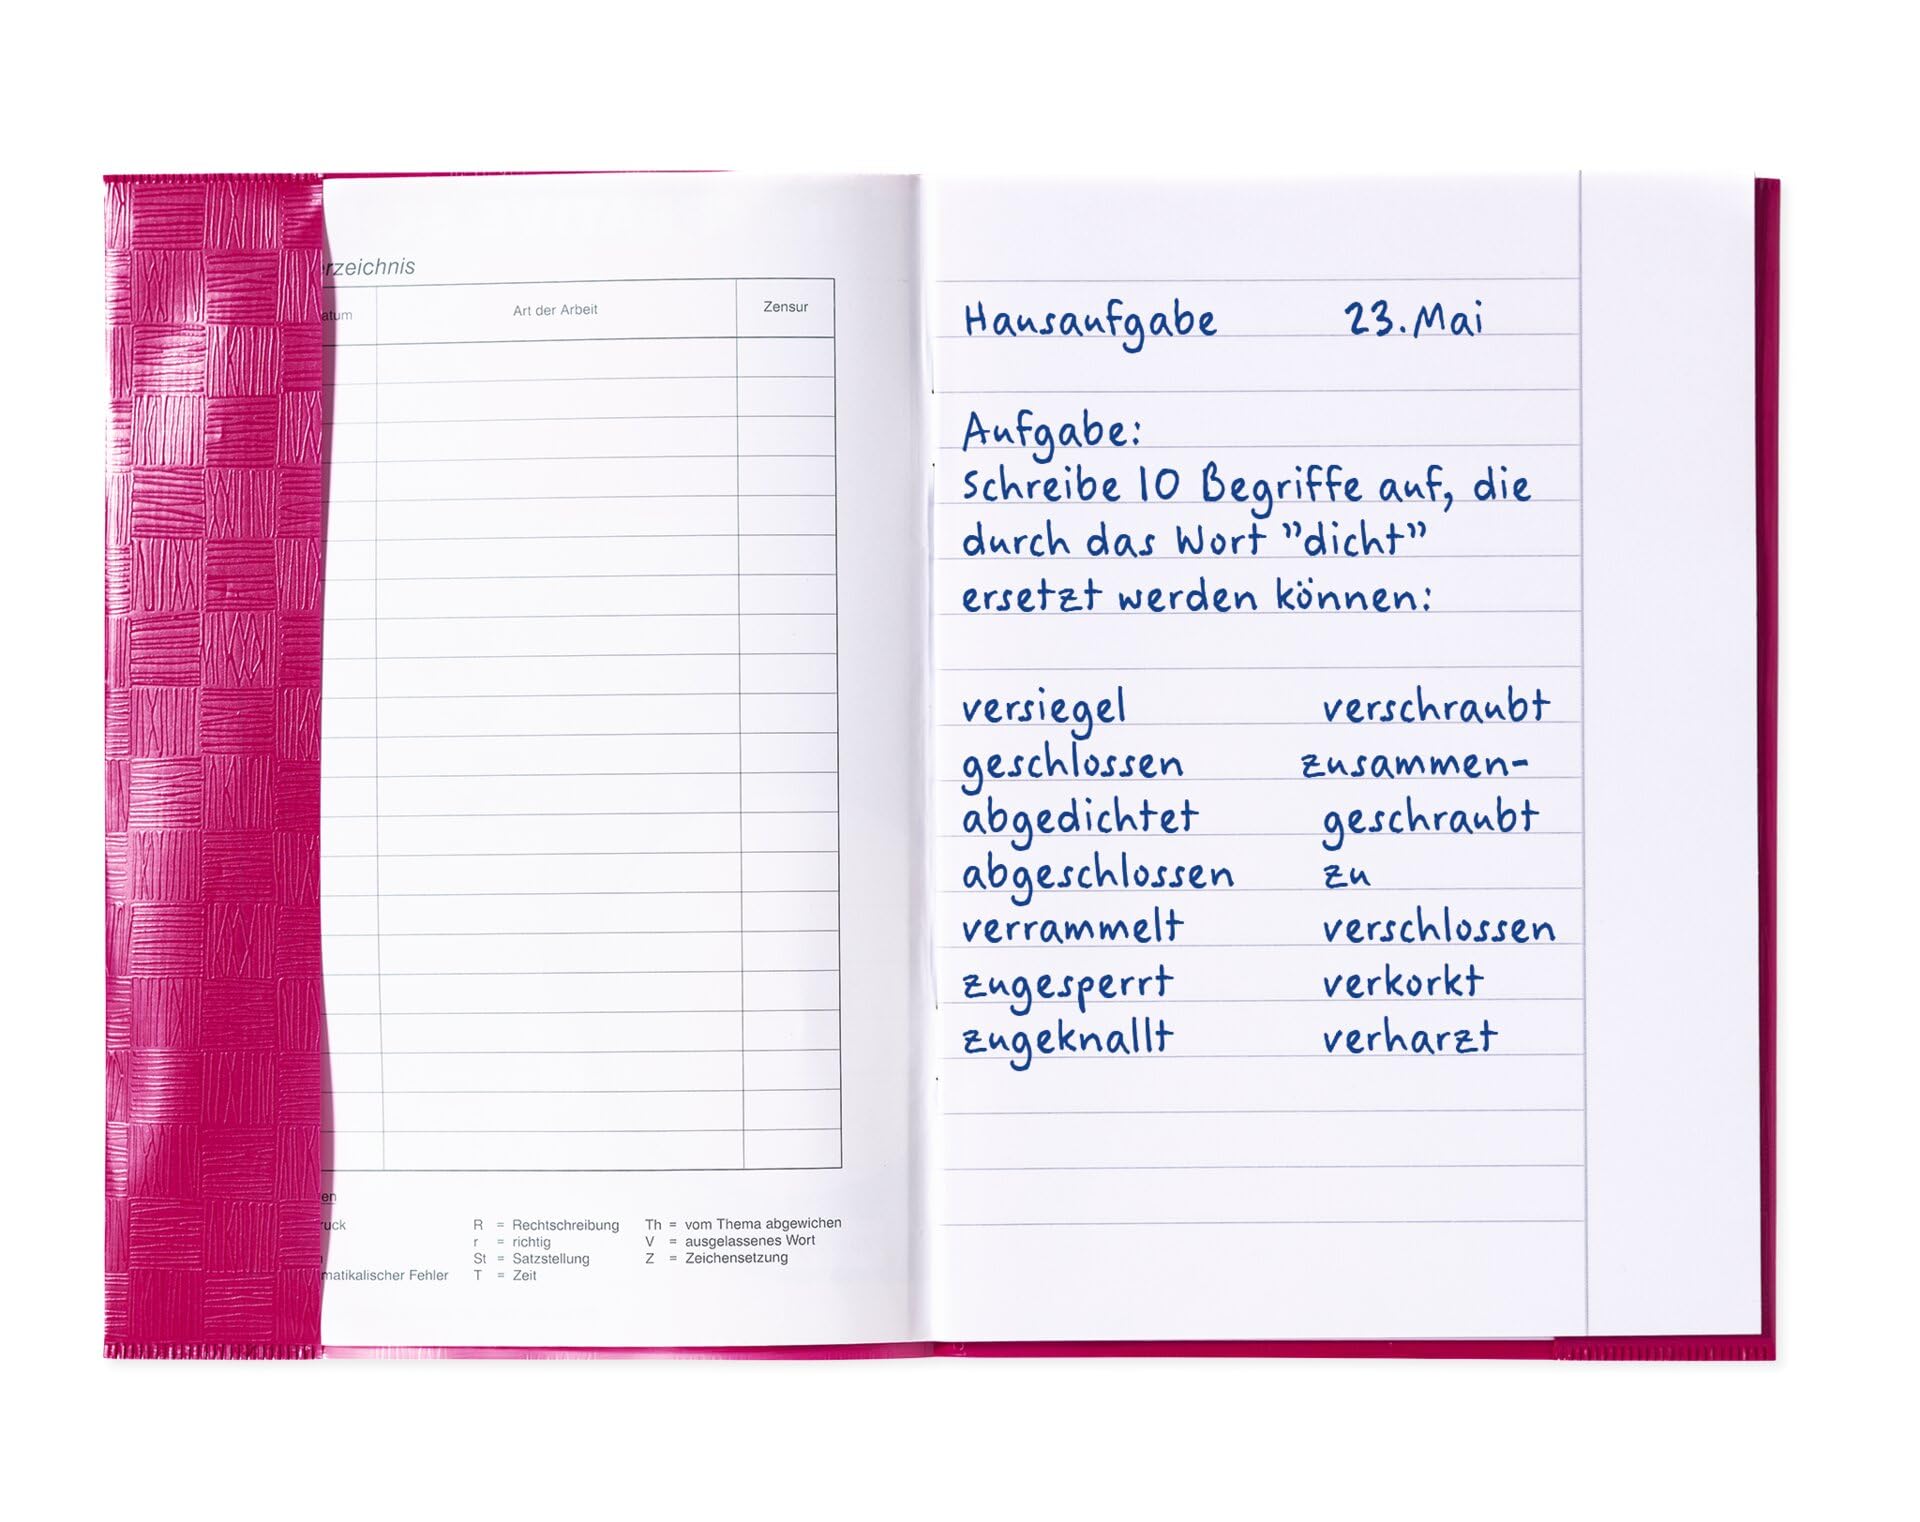 rzeichnis
atum Art der Arbeit Zensur
en
ruck R = Rechtschreibung Th = vom Thema abgewichen
r = richtig V = ausgelassenes Wort
St = Satzstellung Z = Zeichensetzung
matikalischer Fehler T = Zeit
Hausaufgabe 23. Mai
Aufgabe:
Schreibe 10 Begriffe auf, die
durch das Wort ”dicht”
ersetzt werden können:
versiegel
geschlossen
abgedichtet
abgeschlossen
verrammelt
zugesperrt
zugeknallt
verschraubt
zusammen-
geschraubt
zu
verschlossen
verkorkt
verharzt